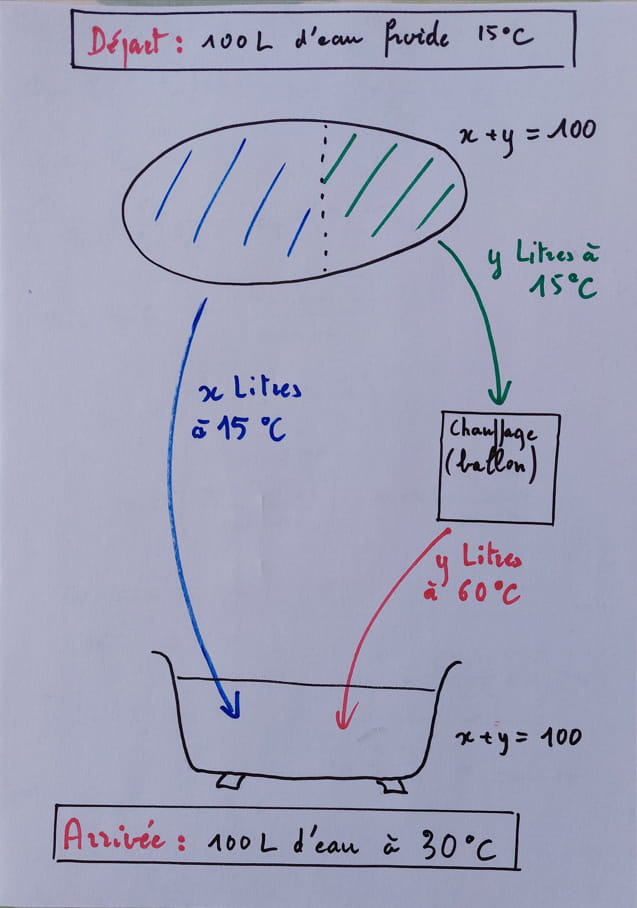 Départ : 100L d'eau froide 15°C
x + y = 100
y Litres à
15°C
x Litres
à 15 °C
Chauffage
(ballon)
y Litres
à 60°C
x + y = 100
Arrivée : 100L d'eau à 30°C